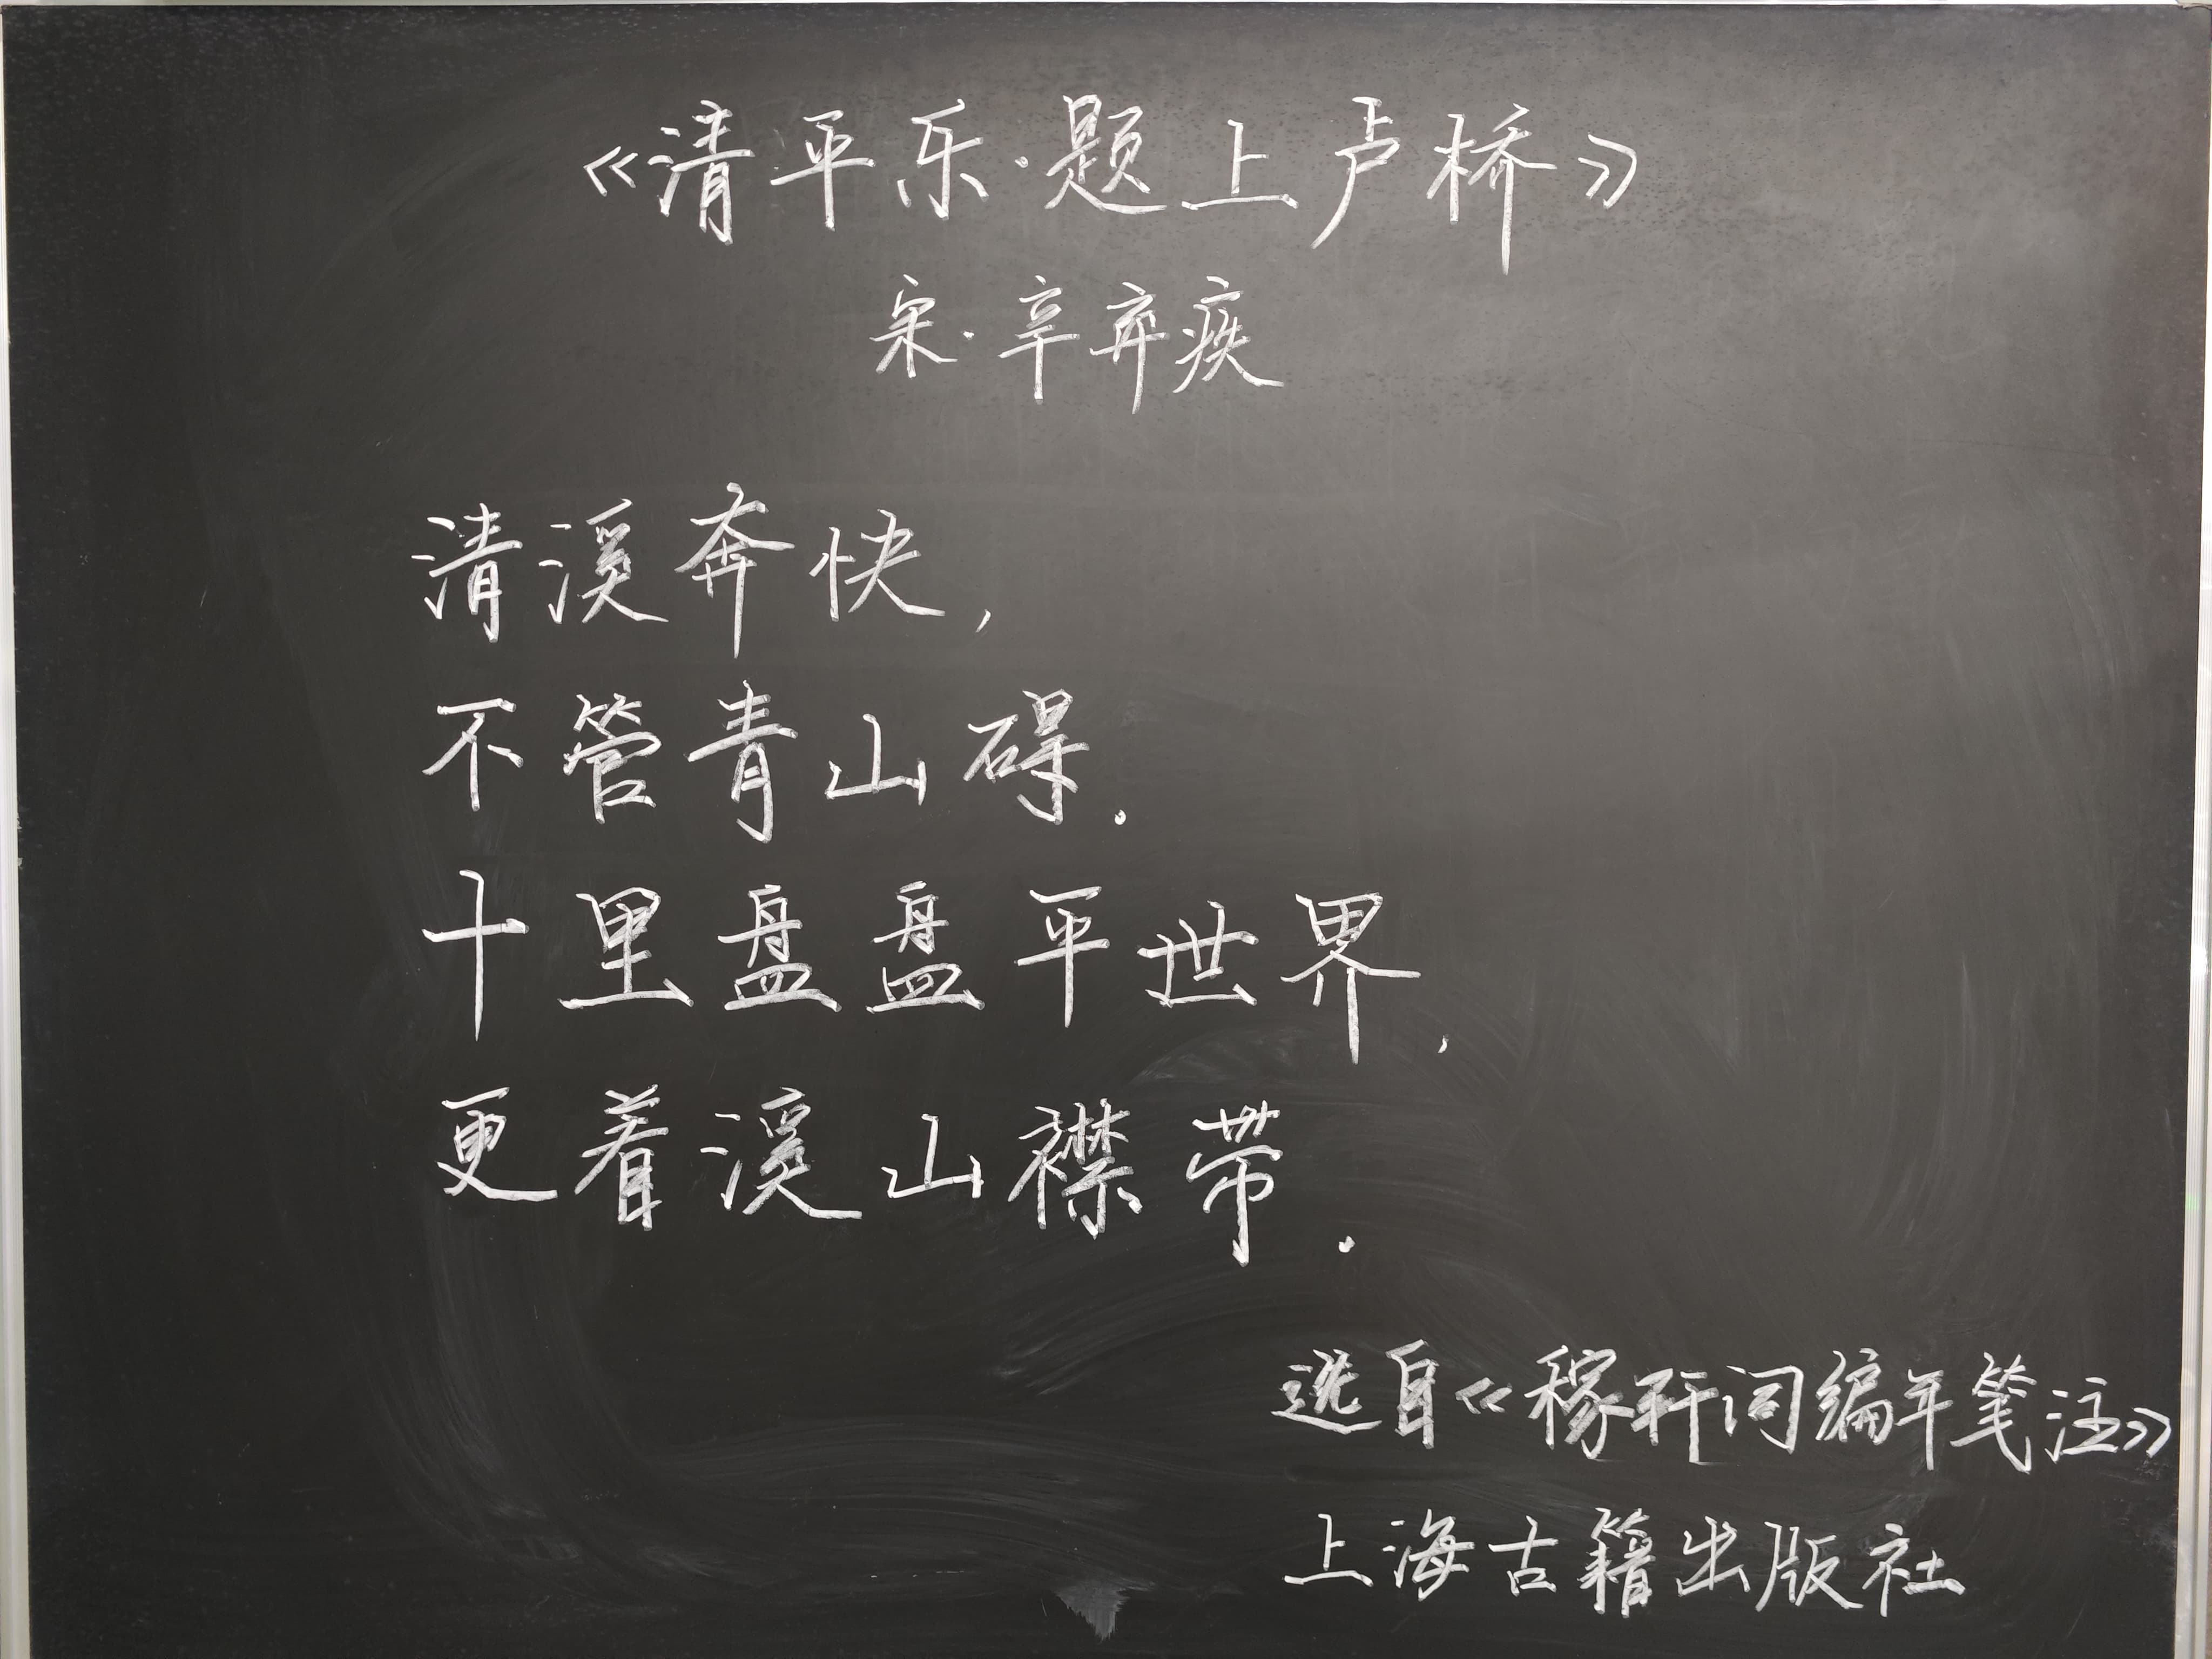 《清平乐·题上卢桥》
宋·辛弃疾
清溪奔快，
不管青山碍．
十里盘盘平世界，
更着溪山襟带．
选自《稼轩词编年笺注》
上海古籍出版社